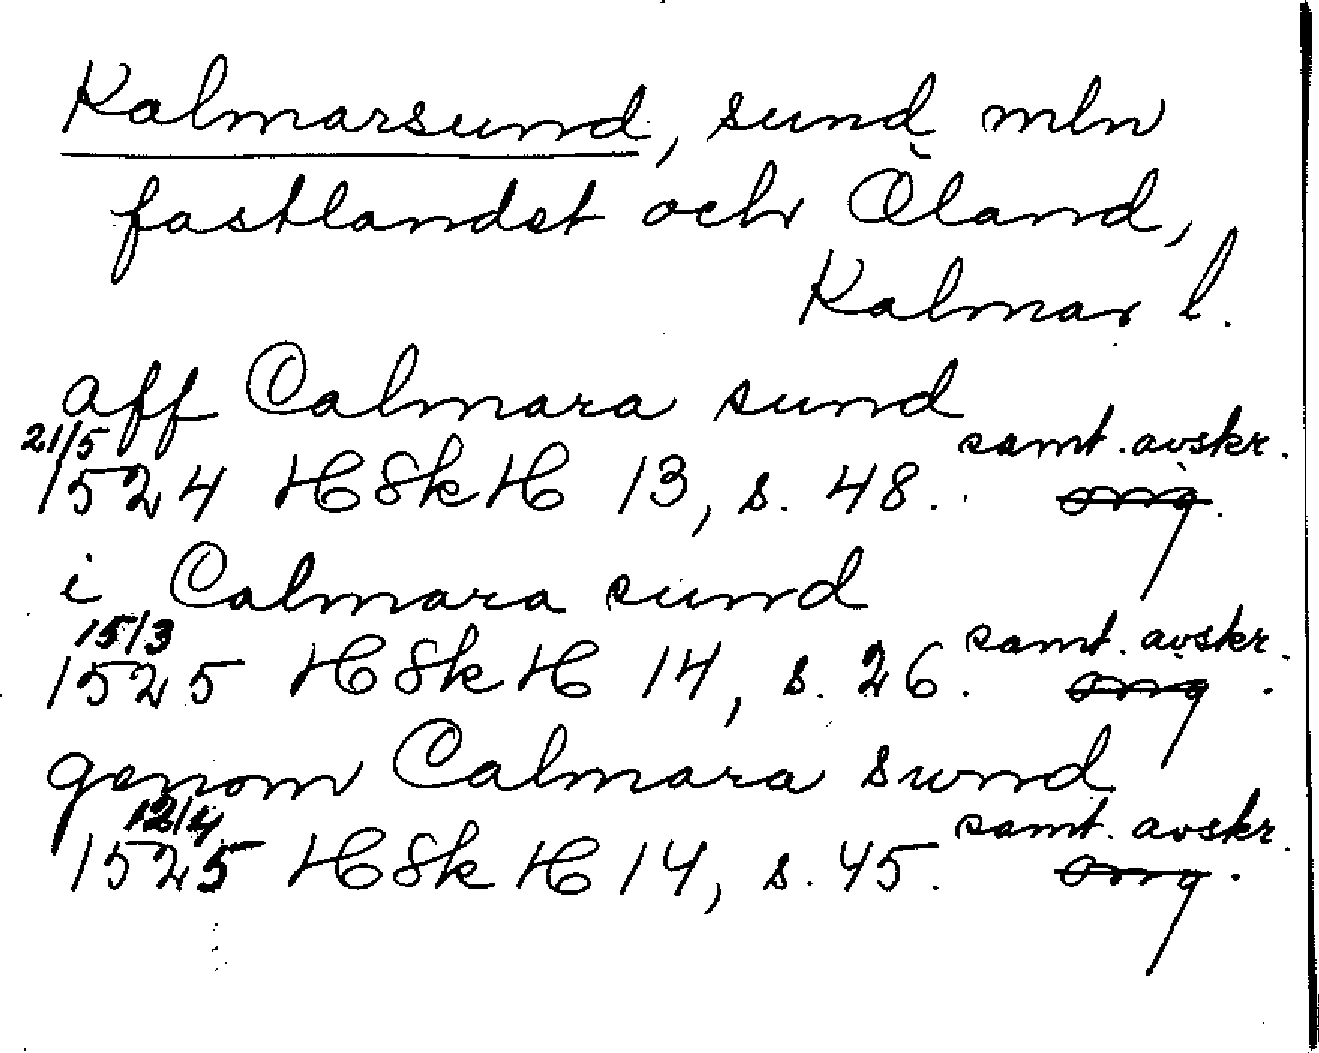 Kalmarsund, sund mln
fastlandet och Öland,
Kalmar l.
aff Calmara sund
21/5 samt. avskr.
1524 HSkH 13, s. 48. org.
i Calmara sund
15/3 samt. avskr.
1525 HSkH 14, s. 26. org.
genom Calmara sund
12/4 samt. avskr.
1525 HSkH 14, s. 45. org.